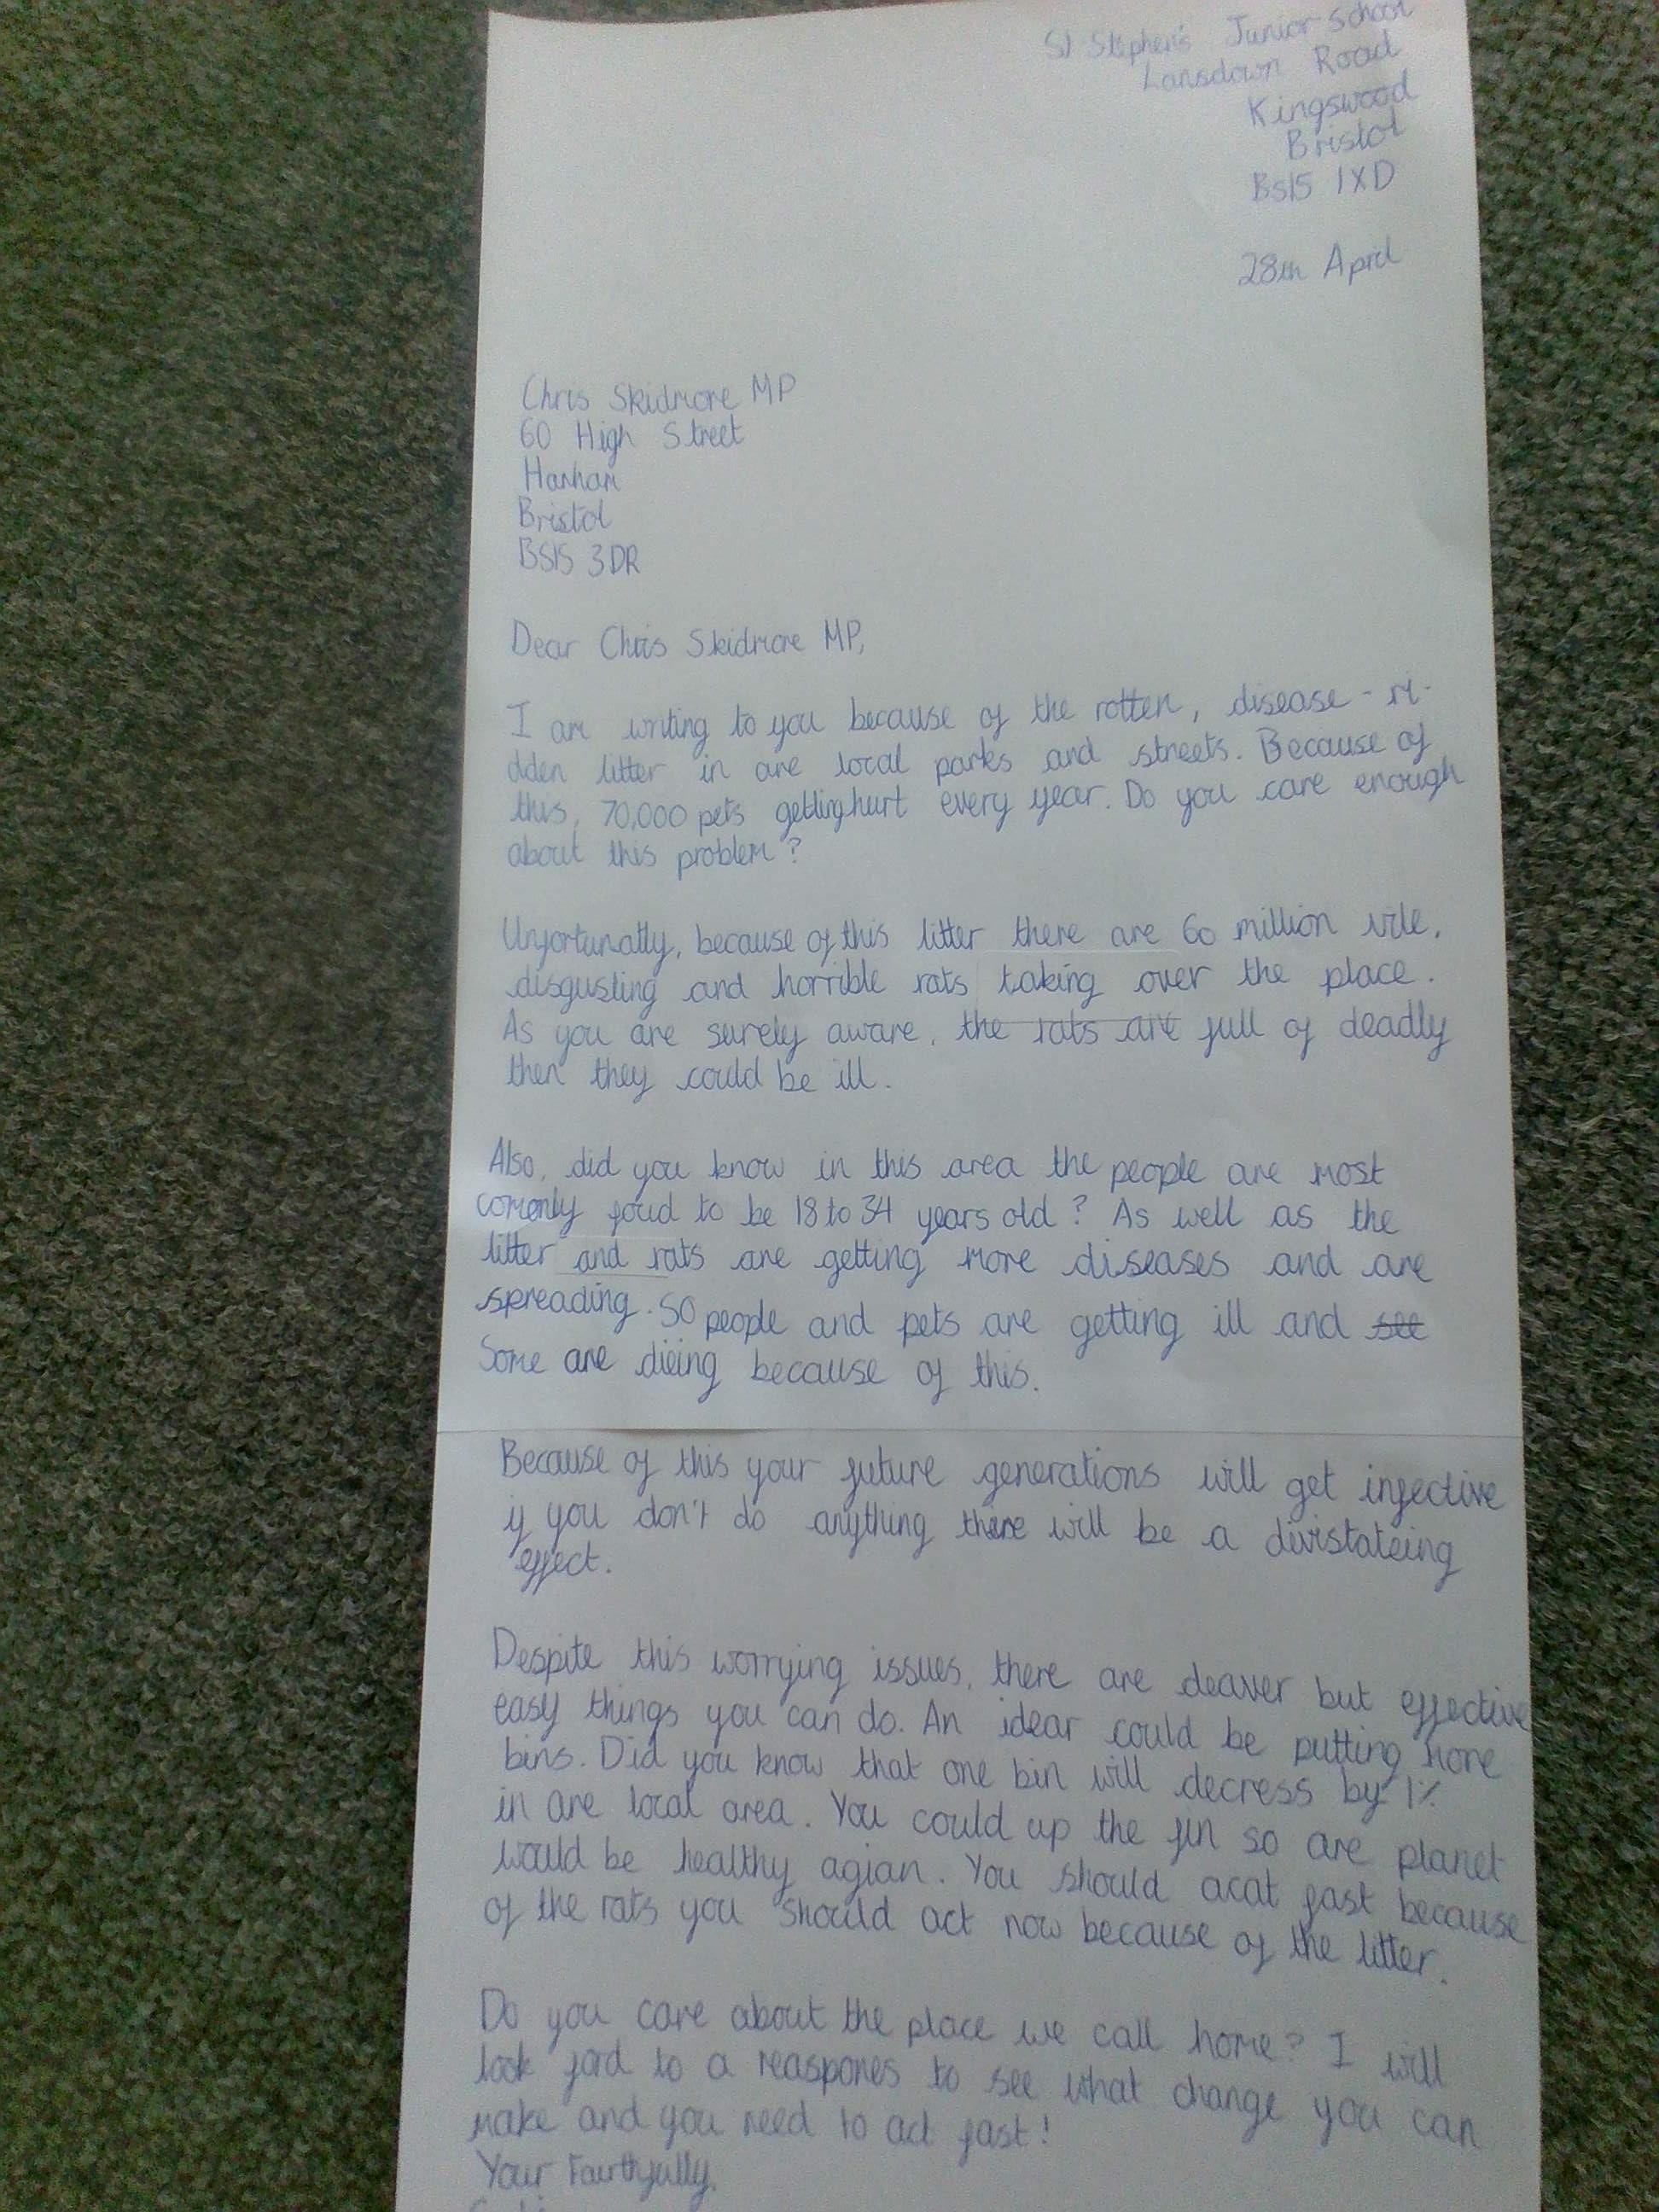 St Stephen's Junior School
Lansdown Road
Kingswood
Bristol
BS15 1XD
28th April
Chris Skidmore MP
60 High Street
Hanham
Bristol
BS15 3DR
Dear Chris Skidmore MP,
I am writing to you because of the rotten, disease-ri-
dden litter in are local parks and streets. Because of
this, 70,000 pets getting hurt every year. Do you care enough
about this problem?
Unfortunatly, because of this litter there are 60 million vile,
disgusting and horrible rats taking over the place.
As you are surely aware, the rats are full of deadly
then they could be ill.
Also, did you know in this area the people are most
comonly foud to be 18 to 34 years old? As well as the
litter and rats are getting more diseases and are
spreading. So people and pets are getting ill and see
Some are dieing because of this.
Because of this your future generations will get infective
if you don't do anything there will be a divistateing
effect.
Despite this worrying issues, there are cleaver but effective
easy things you can do. An idear could be putting more
bins. Did you know that one bin will decress by 1%
in are local area. You could up the fin so are planet
would be healthy agian. You should acat fast because
of the rats you should act now because of the litter.
Do you care about the place we call home? I will
look ford to a reaspones to see what change you can
make and you need to act fast!
Your Fairthfully,